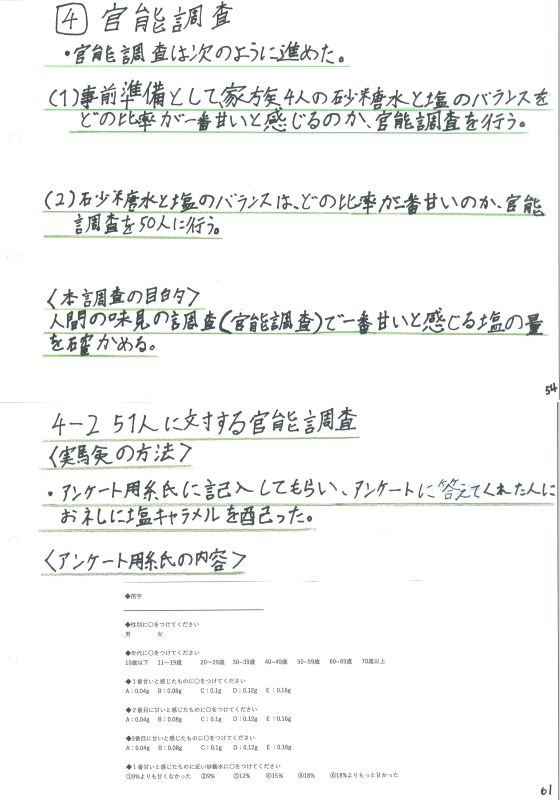 4 官能調査
・官能調査は次のように進めた。
(1)事前準備として、家族4人の砂糖水と塩のバランスを
どの比率が一番甘いと感じるのか、官能調査を行う。
(2)砂糖水と塩のバランスは、どの比率が一番甘いのか、官能
調査を50人に行う。
〈本調査の目的〉
人間の味見の調査(官能調査)で一番甘いと感じる塩の量
を確かめる。
54
4-2 51人に対する官能調査
〈実験の方法〉
・アンケート用紙に記入してもらい、アンケートに答えてくれた人に
お礼に塩キャラメルを配った。
〈アンケート用紙の内容〉
◆苗字
◆性別に○をつけてください
男 女
◆年代に○をつけてください
10歳以下 11~19歳 20~29歳 30~39歳 40~49歳 50~59歳 60~69歳 70歳以上
◆1番甘いと感じたものに○をつけてください
A:0.04g B:0.08g C:0.1g D:0.12g E:0.16g
◆2番目に甘いと感じたものに○をつけてください
A:0.04g B:0.08g C:0.1g D:0.12g E:0.16g
◆3番目に甘いと感じたものに○をつけてください
A:0.04g B:0.08g C:0.1g D:0.12g E:0.16g
◆1番甘いと感じたものに近い砂糖水に○をつけてください
①9%よりも甘くなかった ②9% ③12% ④15% ⑤18% ⑥18%よりもっと甘かった
61